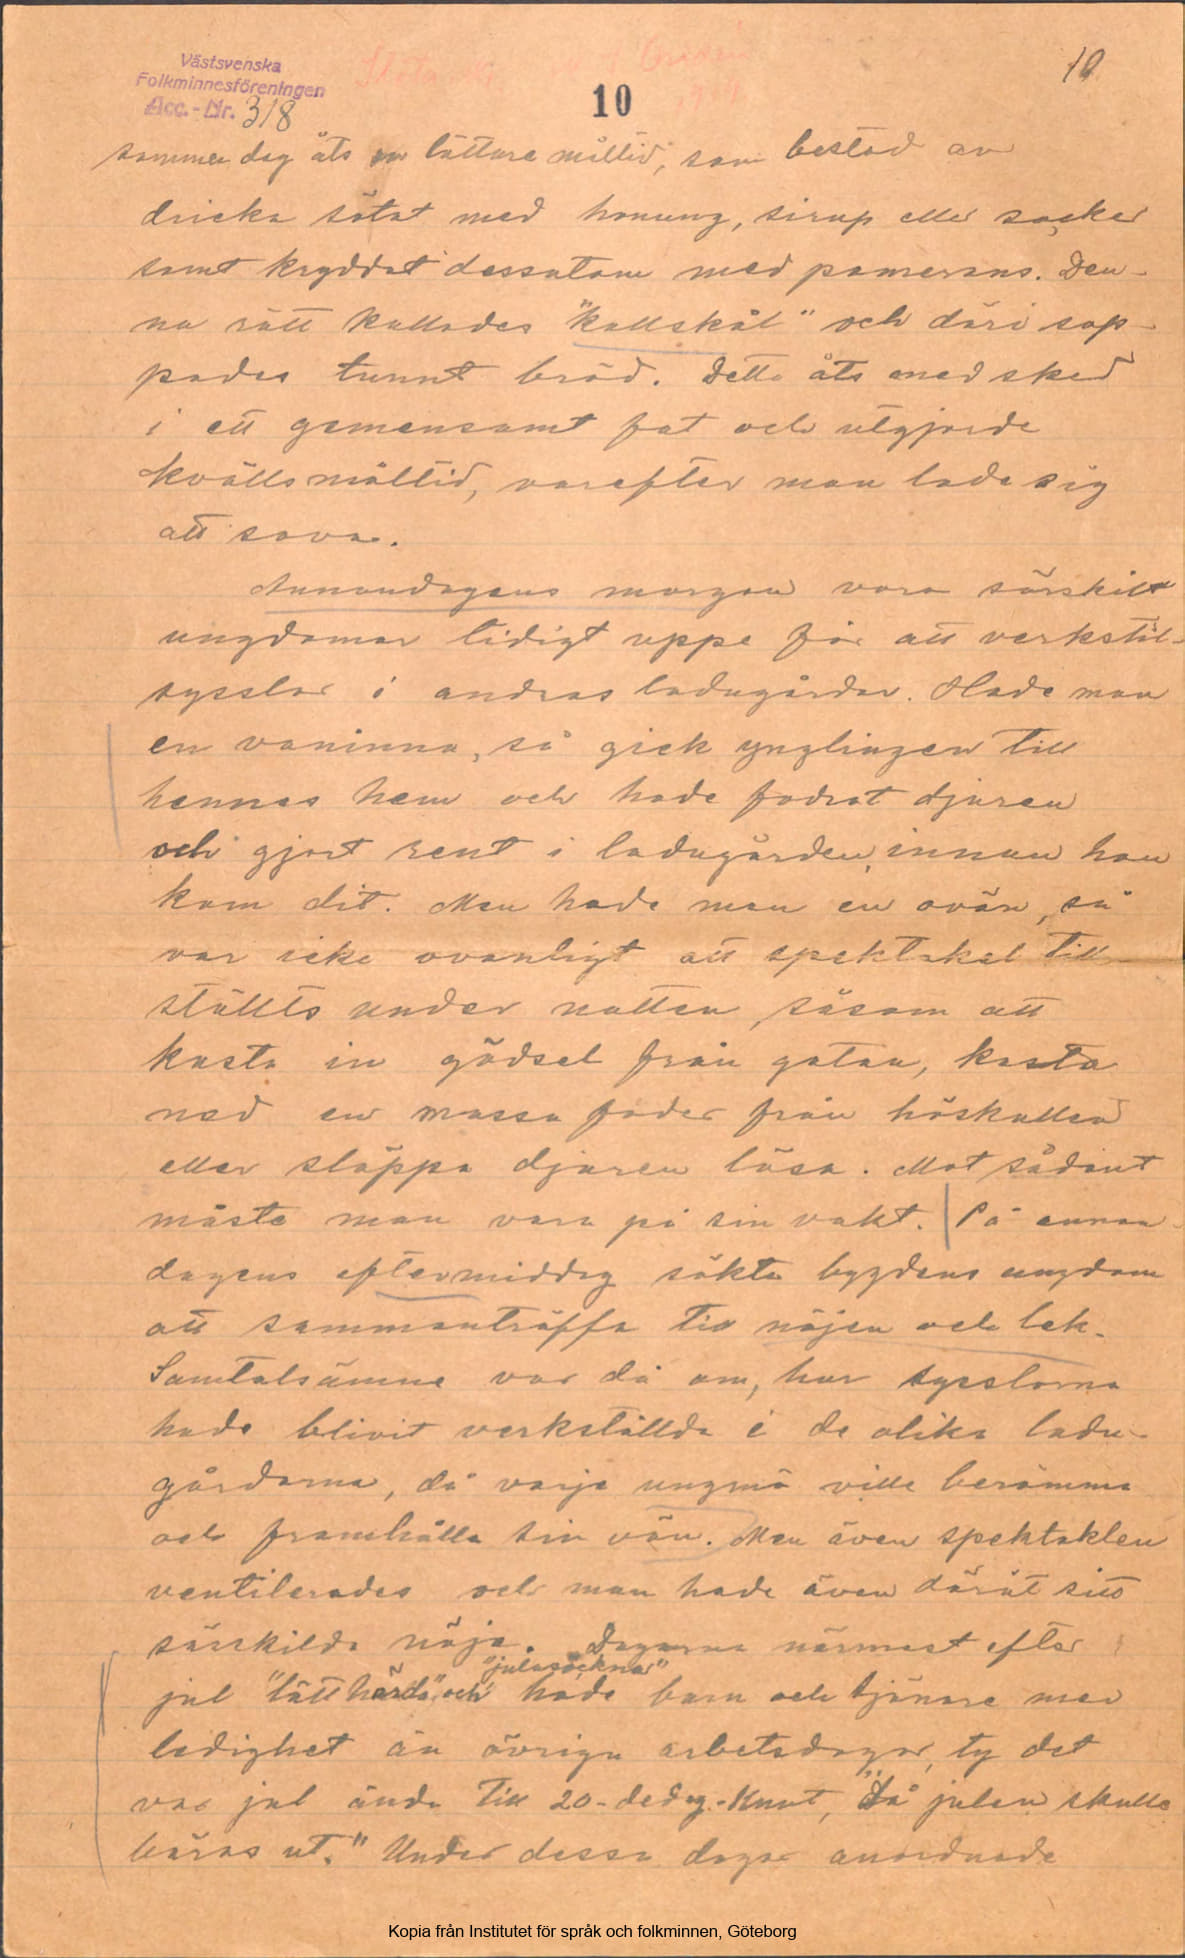 Västsvenska
Folkminnesföreningen
Acc.-Nr. 318
10
10
samma dag åts en lättare måltid, som bestod av
dricka sötat med honung, sirup eller socker
samt kryddat dessutom med pomerans. Den-
na rätt kallades "kallskål" och däri sop-
pades tunnt bröd. Detta åts med sked
i ett gemensamt fat och utgjorde
kvällsmåltid, varefter man lade sig
att sova.
Annandagens morgon voro särskilt
ungdomar tidigt uppe för att verkstäl-
sysslor i andras ladugårdar. Hade man
en vaninna, så gick ynglingen till
hennes hem och hade fodrat djuren
och gjort rent i ladugården, innan hon
kom dit. Men hade man en ovän, så
var icke ovanligt att spektakel till-
ställts under natten, såsom att
kasta in gödsel från gatan, kasta
ned en massa foder från höskullen
eller släppa djuren lösa. Mot sådant
måste man vara på sin vakt. På annan-
dagens eftermiddag sökte bygdens ungdom
att sammanträffa till nöjen och lek.
Samtalsämne var då om, hur sysslorna
hade blivit verkställda i de olika ladu-
gårdarna, då varje ungmö ville berömma
och framhålla sin vän. Men även spektaklen
ventilerades och man hade även däråt sitt
särskilda nöje. Dagarna närmast efter
"julasöckna"
jul "lätthärda" och hade barn och tjänare mer
ledighet än övriga arbetsdagar, ty det
var jul ända till 20-dedag-Knut, "då julen skulle
bäras ut." Under dessa dagar anordnade
Kopia från Institutet för språk och folkminnen, Göteborg